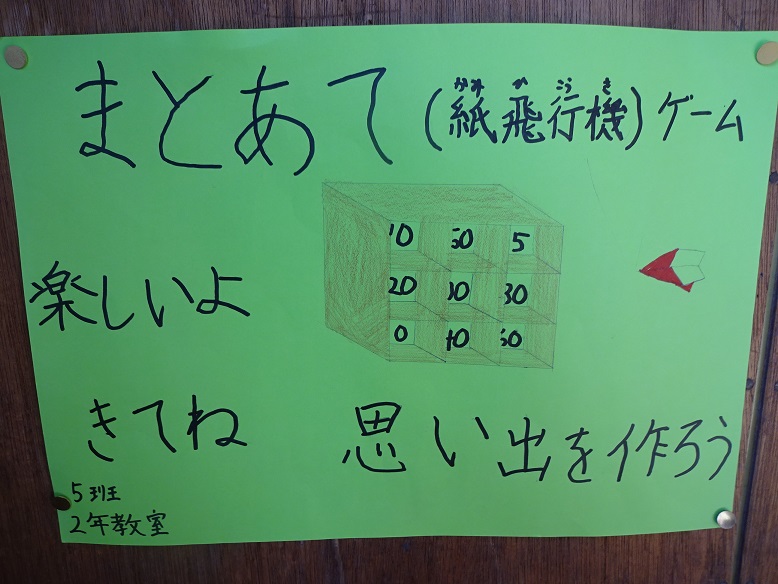 まとあて(紙飛行機)ゲーム
かみ ひ こう き
10 50 5
20 10 30
0 10 50
楽しいよ
きてね 思い出を作ろう
5班
2年教室